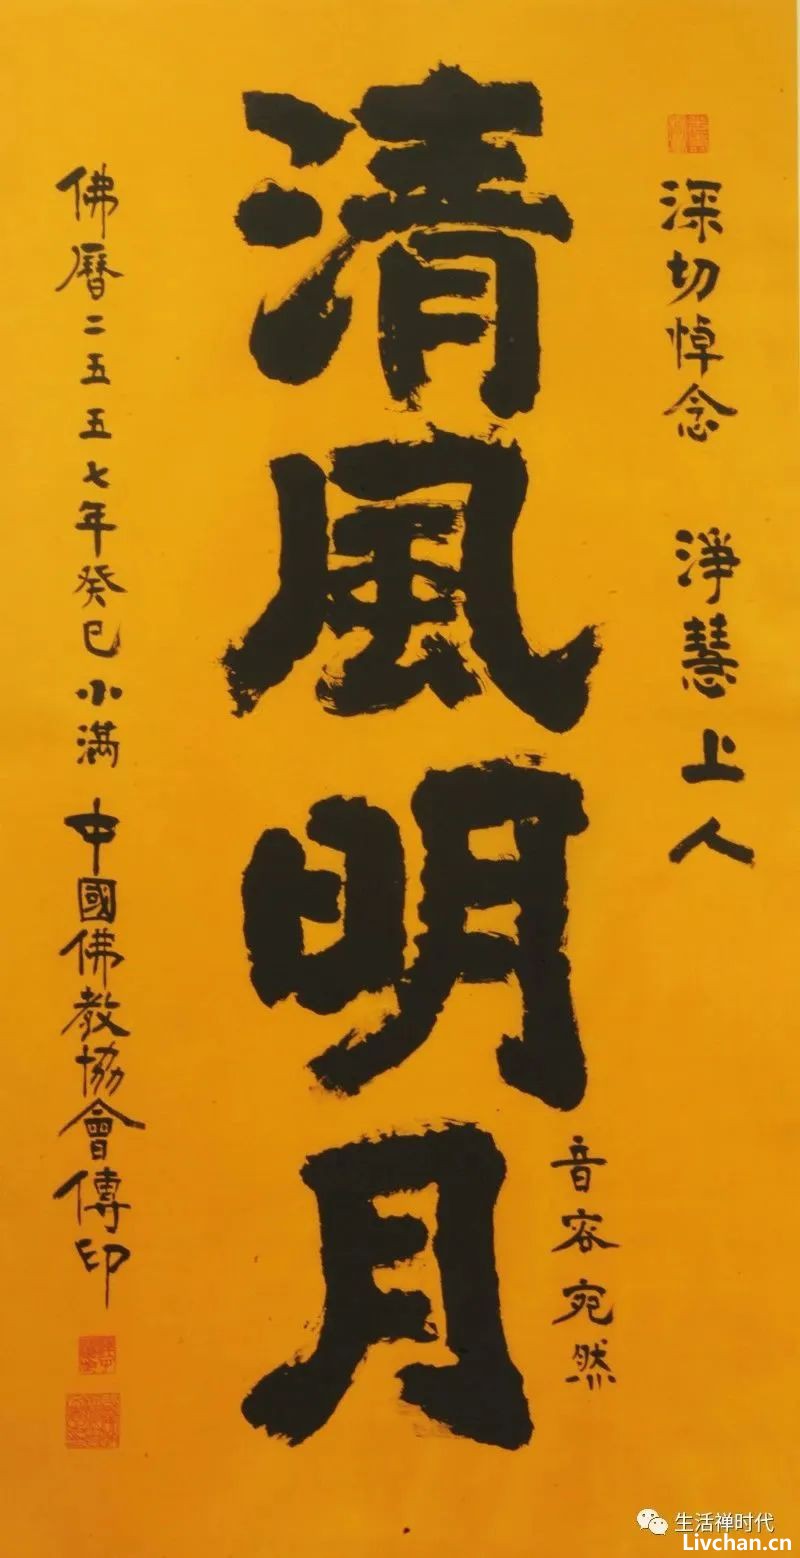 深切悼念 淨慧上人
清風明月
音容宛然
佛曆二五五七年癸巳小滿 中國佛教協會傳印
生活禅时代
Livchan.cn